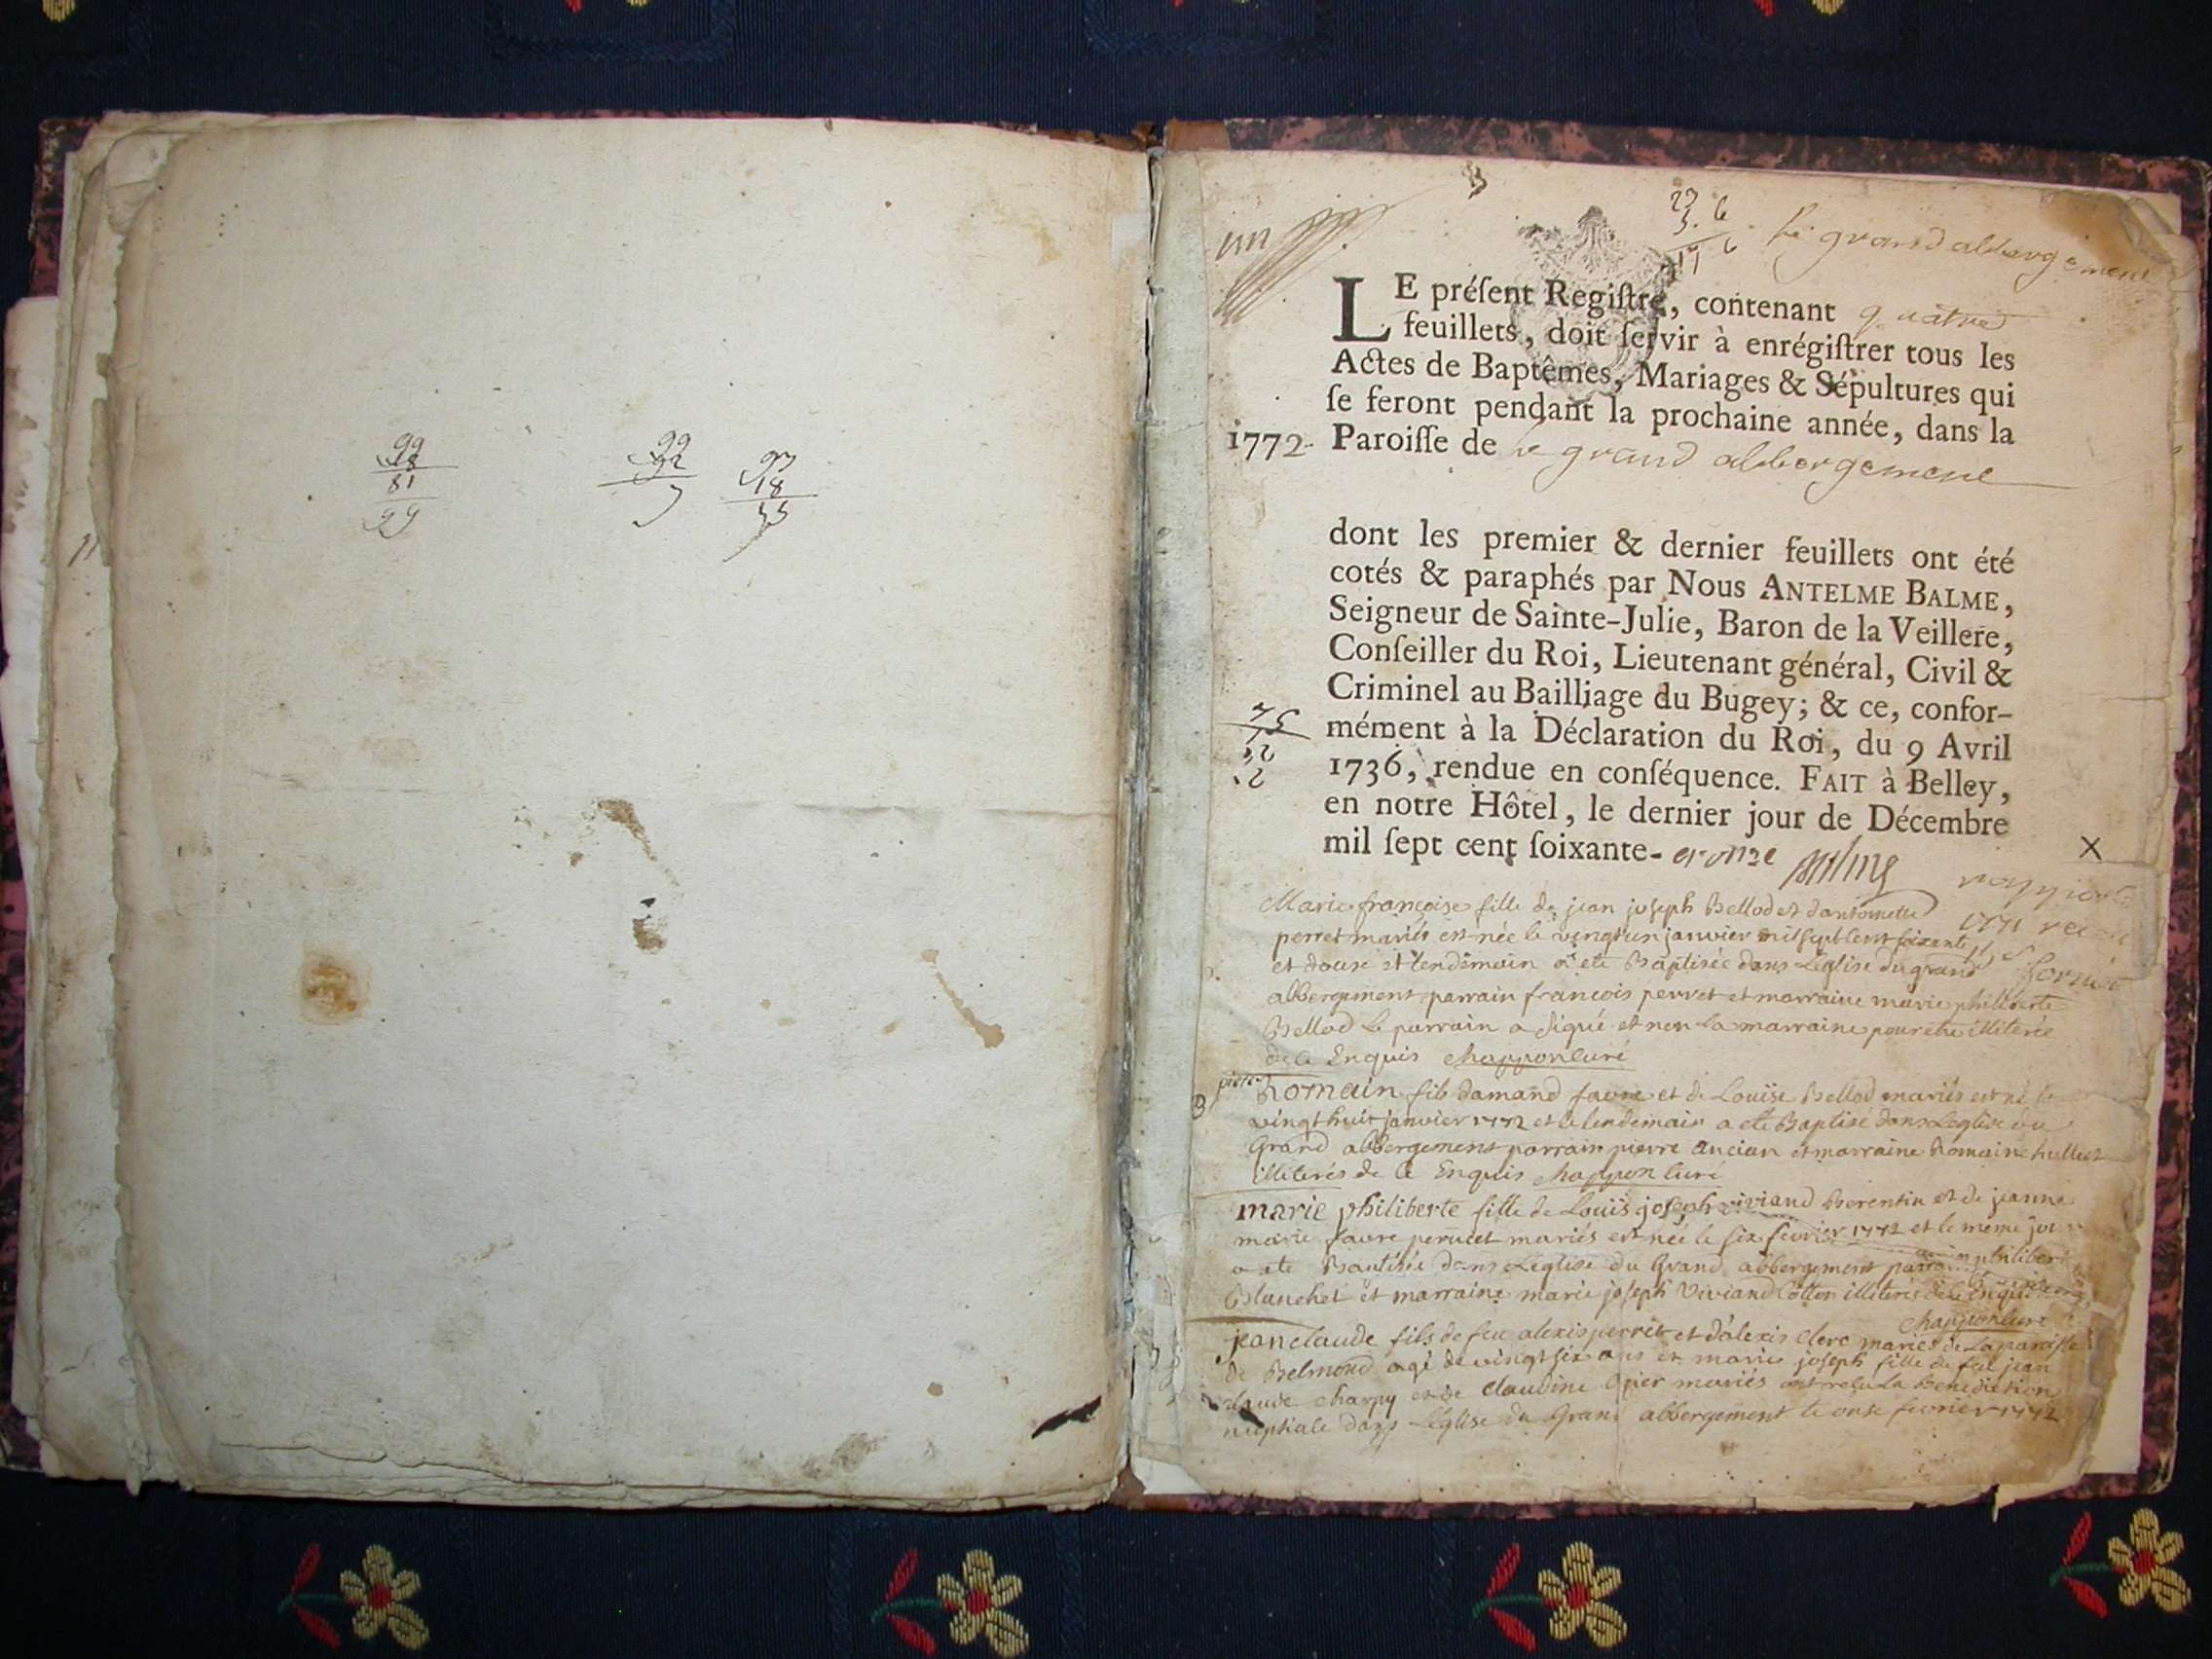 99
18
81
99
99
92
7
93
18
un
23 6
3.
17 6
Le grand abbergement
LE préſent Regiſtre, contenant quatre
feuillets, doit ſervir à enrégiſtrer tous les
Actes de Baptêmes, Mariages & Sépultures qui
ſe feront pendant la prochaine année, dans la
1772. Paroiſſe de Le grand abbergement
dont les premier & dernier feuillets ont été
cotés & paraphés par Nous ANTELME BALME,
Seigneur de Sainte-Julie, Baron de la Veillere,
Conſeiller du Roi, Lieutenant général, Civil &
Criminel au Bailliage du Bugey; & ce, confor-
mément à la Déclaration du Roi, du 9 Avril
1736, rendue en conſéquence. FAIT à Belley,
en notre Hôtel, le dernier jour de Décembre
mil ſept cent ſoixante- et onze
X
Marie françoise fille de jean joseph Bellod et dantoinette
perret mariés est née le vingt un janvier mil sept cent soixante
et douse et lendemain a ete Baptisée dans Léglise du grand
abbergement parrain francois perret et marraine marie philiberte
Bellod le parrain a signé et non la marraine pour etre illiterée
de ce Enquis chappon curé
Romain fils damand favre et de Louise Bellod mariés est né le
vingt huit janvier 1772 et le lendemain a ete Baptisé dans Leglise du
Grand abbergement parrain pierre ancian et marraine Romaine hulliet
illiterés de ce Enquis chappon curé
marie philiberte fille de Louis joseph viviand Berentin et de jeanne
marie favre perucet mariés est née le six fevrier 1772 et le même jour
a ete Bautisée dans Leglise du Grand abbergement parrain philibert
Blanchet et marraine marie joseph Viviand Cotton illiterés de ce Enquis
chappon curé
jean claude fils de feu alexis perret et d'alexis clerc mariés de La paroisse
de Belmond agé de vingt six ans et marie joseph fille de feu jean
claude charpy et de claudine Gpier mariés ont reçu La Benediction
nuptiale dans Léglise du Grand abbergement le onse fevrier 1772